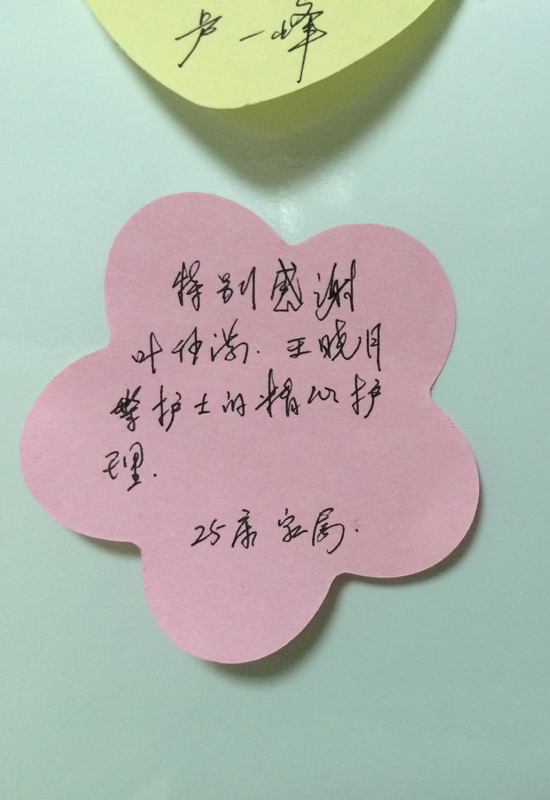 卢一峰
特别感谢
叶仲 王晓月
等护士的精心护
理.
25床 家属.